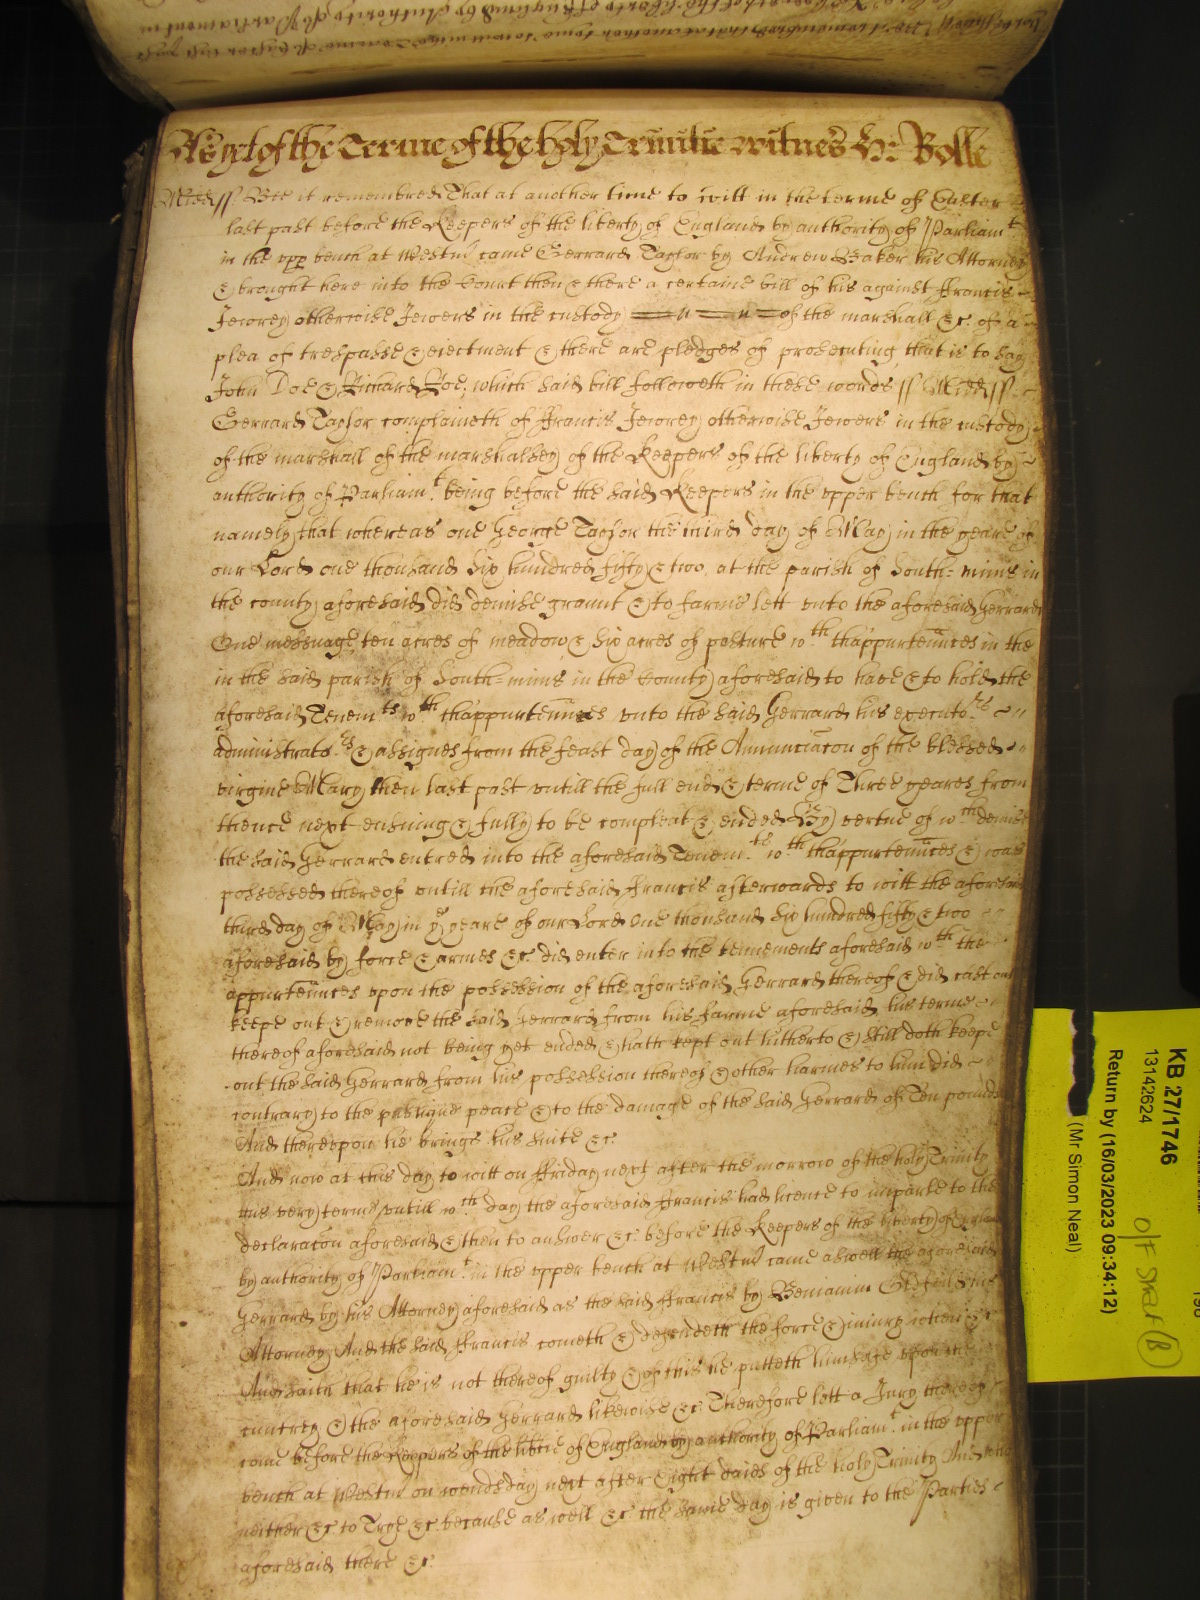 As yet of the Terme of the holy Trinitie witnes H: Rolle
Midd ss Bee it remembred That at another time to witt in the terme of Easter
last past before the Keepers of the liberty of England by authority of Parliamt
in the vpp bench at Westm came Gerrard Taylor by Andrew Baker his Attorney
& brought here into the Court then & there a certaine bill of his against Francis
Jewrey otherwise Jewers in the custody of the marshall &c: of a
plea of trespasse & eiectment & there are pledges of prosecuting that is to say
John Doe & Richard Roe, which said bill followeth in these words ss Midd ss
Gerrard Taylor complaineth of Francis Jewrey otherwise Jewers in the custody
of the marshall of the marshalsey of the Keepers of the liberty of England by
authority of Parliamt. being before the said Keepers in the vpper bench for that
namely that whereas one George Taylor the third day of May in the yeare of
our Lord one thousand six hundred fifty & two at the parish of South=mims in
the county aforesaid did demise graunt & to farme lett vnto the aforesaid Gerrard
One messuage ten acres of meadow & six acres of pasture wth. thappurtennces in the
in the said parish of South=mims in the County aforesaid to have & to hold the
aforesaid Tenemts wth thappurtennces vnto the said Gerrard his executors
administrators & assignes from the feast day of the Annunciacon of the blessed
virgine Mary then last past vntill the full end & terme of Three yeares from
thence next ensuing & fully to be compleat & ended By vertue of wch demise
the said Gerrard entred into the aforesaid Tenemts wth thappurtennces & was
possessed thereof vntill the aforesaid Francis afterwards to witt the aforesaid
third day of May in ye yeare of our Lord One thousand six hundred fifty & two
aforesaid by force & armes &c. did enter into the tennements aforesaid wth the
appurtennces vpon the possession of the aforesaid Gerrard thereof & did cast out
keepe out & remove the said Gerrard from his farme aforesaid his terme
thereof aforesaid not being yet ended & hath kept out hitherto & still doth keepe
out the said Gerrard from his possession thereof & other harmes to him did
contrary to the publique peace & to the damage of the said Gerrard of Ten pounds
And therevpon he brings his suite &c:
And now at this day to witt on Friday next after the morrow of the holy Trinity
this very terme vntill wch day the aforesaid Francis had licence to imparle to the
declaracon aforesaid & then to answer &c: before the Keepers of the liberty of England
by authority of Parliamt. in the vpper bench at Westm came aswell the aforesaid
Gerrard by his Attorney aforesaid as the said Francis by Beniamin his
Attorney And the said Francis cometh & defendeth the force & iniury when &c
And saith that he is not thereof guilty & of this he putteth himselfe vpon the
cuntrey & the aforesaid Gerrard likewise &c: Therefore lett a Jury thereof
come before the Keepers of the libtie of England by authority of Parliamt. in the vpper
bench at Westm on wendsday next after Eight daies of the holy Trinity And who
neither &c to Trye &c. because as well &c the same day is given to the Parties
aforesaid there &c:
KB 27/1746
13142624
Return by (16/03/2023 09:34:12)
(Mr Simon Neal)